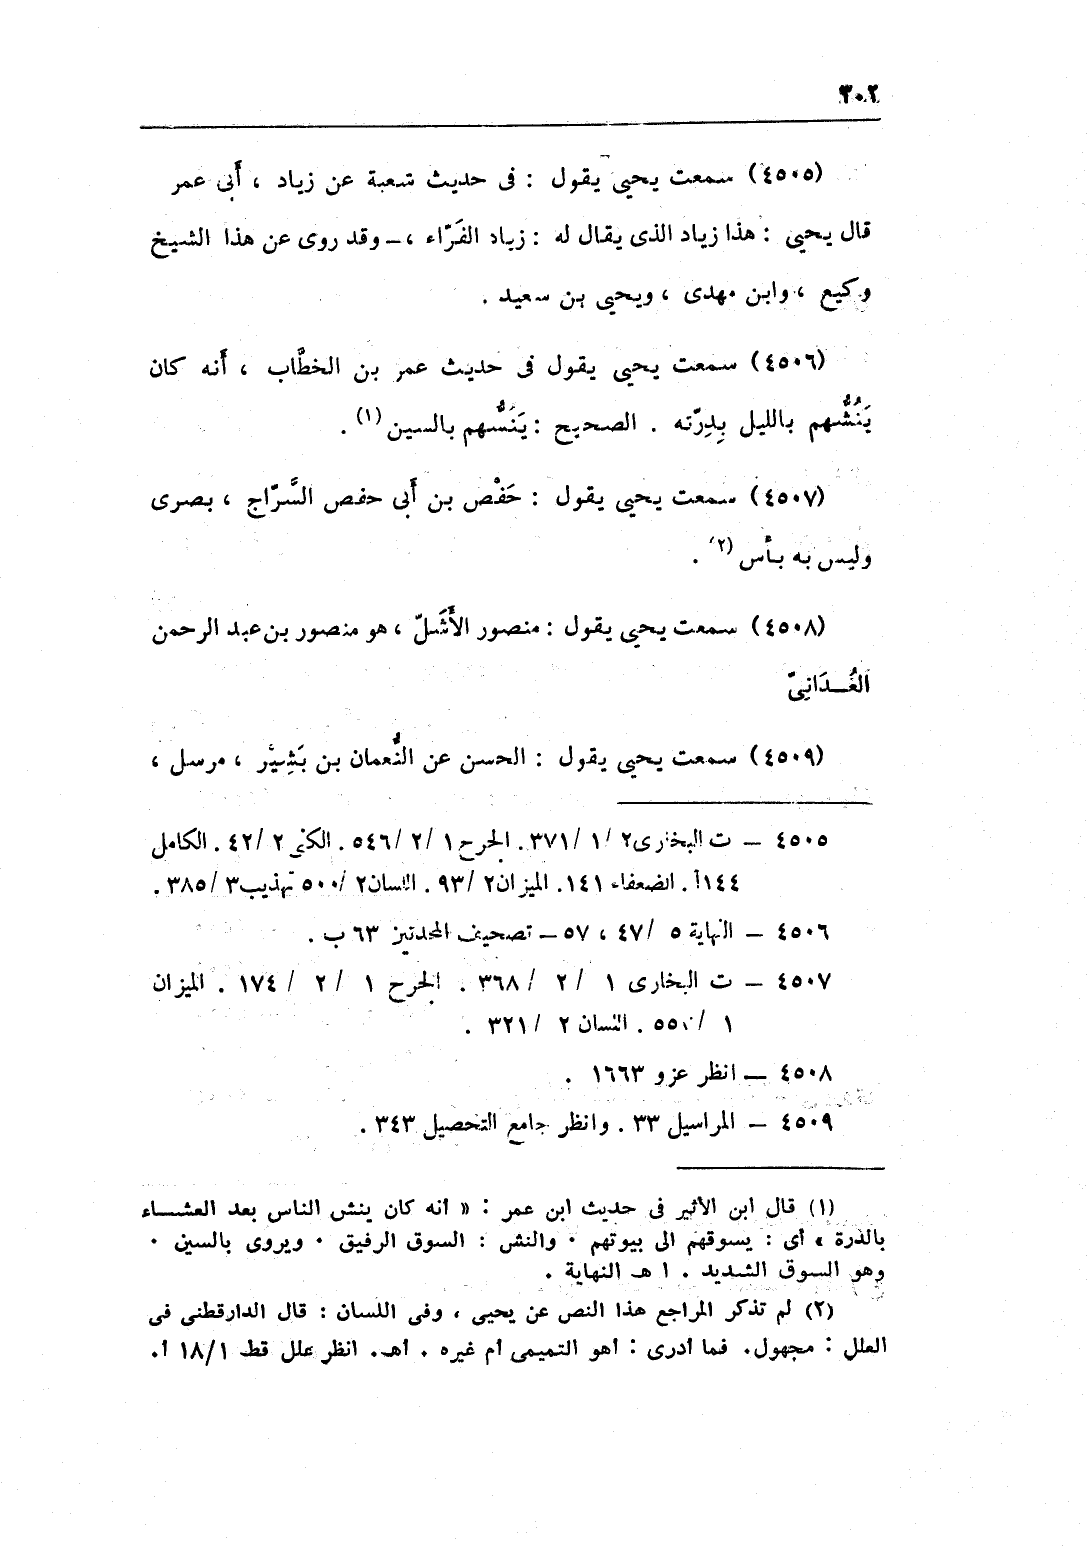 ٣٠٢
(٤٥٠٥) سمعت يحيى يقول : فى حديث شعبة عن زياد ، أَبى عمر
قال يحيى : هذا زياد الذى يقال له : زياد الفَرّاء ، ــ وقد روى عن هذا الشيخ
وكيع ، وابن مهدى ، ويحيى بن سعيد .
(٤٥٠٦) سمعت يحيى يقول فى حديث عمر بن الخطَّاب ، أَنه كان
يَنُشُّهم بالليل بِدِرّته . الصحيح : يَنُسُّهم بالسين (١) .
(٤٥٠٧) سمعت يحيى يقول : حَفْص بن أَبى حفص السَّرّاج ، بصرى
وليس به بأْس (٢) .
(٤٥٠٨) سمعت يحيى يقول : منصور الأَشَلّ ، هو منصور بن عبد الرحمن
الغُــدَانِىّ
(٤٥٠٩) سمعت يحيى يقول : الحسن عن النُّعمان بن بَشِيْر ، مرسل ،
٤٥٠٥ ــ ت البخارى ٢ / ١ / ٣٧١ . الجرح ١ / ٢ / ٥٤٦ . الكنى ٢ / ٤٢ . الكامل
١٤٤أ . الضعفاء ١٤١ . الميزان ٢ / ٩٣ . اللسان ٢ / ٥٠٠ تهذيب ٣ / ٣٨٥ .
٤٥٠٦ ــ النهاية ٥ / ٤٧ ، ٥٧ ــ تصحيف المحدثين ٦٣ ب .
٤٥٠٧ ــ ت البخارى ١ / ٢ / ٣٦٨ . الجرح ١ / ٢ / ١٧٤ . الميزان
١ / ٥٥٠ . اللسان ٢ / ٣٢١ .
٤٥٠٨ ــ انظر عزو ١٦٦٣ .
٤٥٠٩ ــ المراسيل ٣٣ . وانظر جامع التحصيل ٣٤٣ .
(١) قال ابن الأثير فى حديث ابن عمر : « أنه كان ينش الناس بعد العشــاء
بالدرة » أى : يسوقهم الى بيوتهم . والنش : السوق الرفيق . ويروى بالسين .
وهو السوق الشديد . ا هـ النهاية .
(٢) لم تذكر المراجع هذا النص عن يحيى ، وفى اللسان : قال الدارقطنى فى
العلل : مجهول . فما أدرى : أهو التميمى أم غيره . أهـ. انظر علل قط ١٨/١ أ.